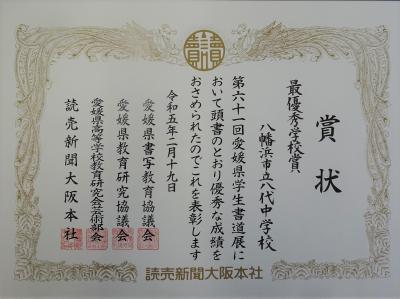 賞状
最優秀学校賞
八幡浜市立八代中学校
第六十一回愛媛県学生書道展に
おいて頭書のとおり優秀な成績を
おさめられたのでこれを表彰します
令和五年二月十九日
愛媛県書写教育協議会
愛媛県教育研究協議会
愛媛県高等学校教育研究会芸術部会
読売新聞大阪本社
読売新聞大阪本社